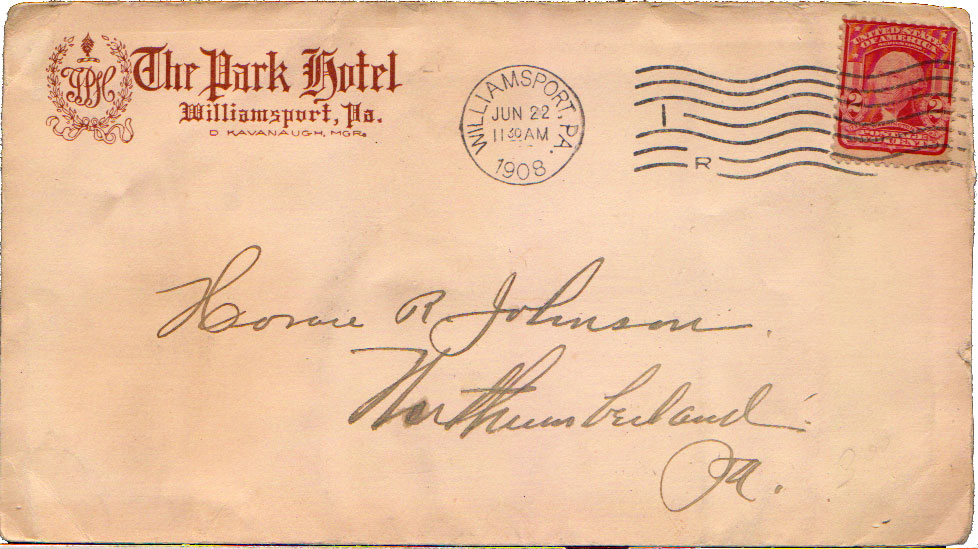 The Park Hotel
Williamsport, Pa.
D KAVANAUGH, MGR.
WILLIAMSPORT, PA.
JUN 22
11 30 AM
1908
I
R
UNITED STATES
OF AMERICA
2 2
POSTAGE
CENTS
Horace R Johnson.
Northumberland
Pa.